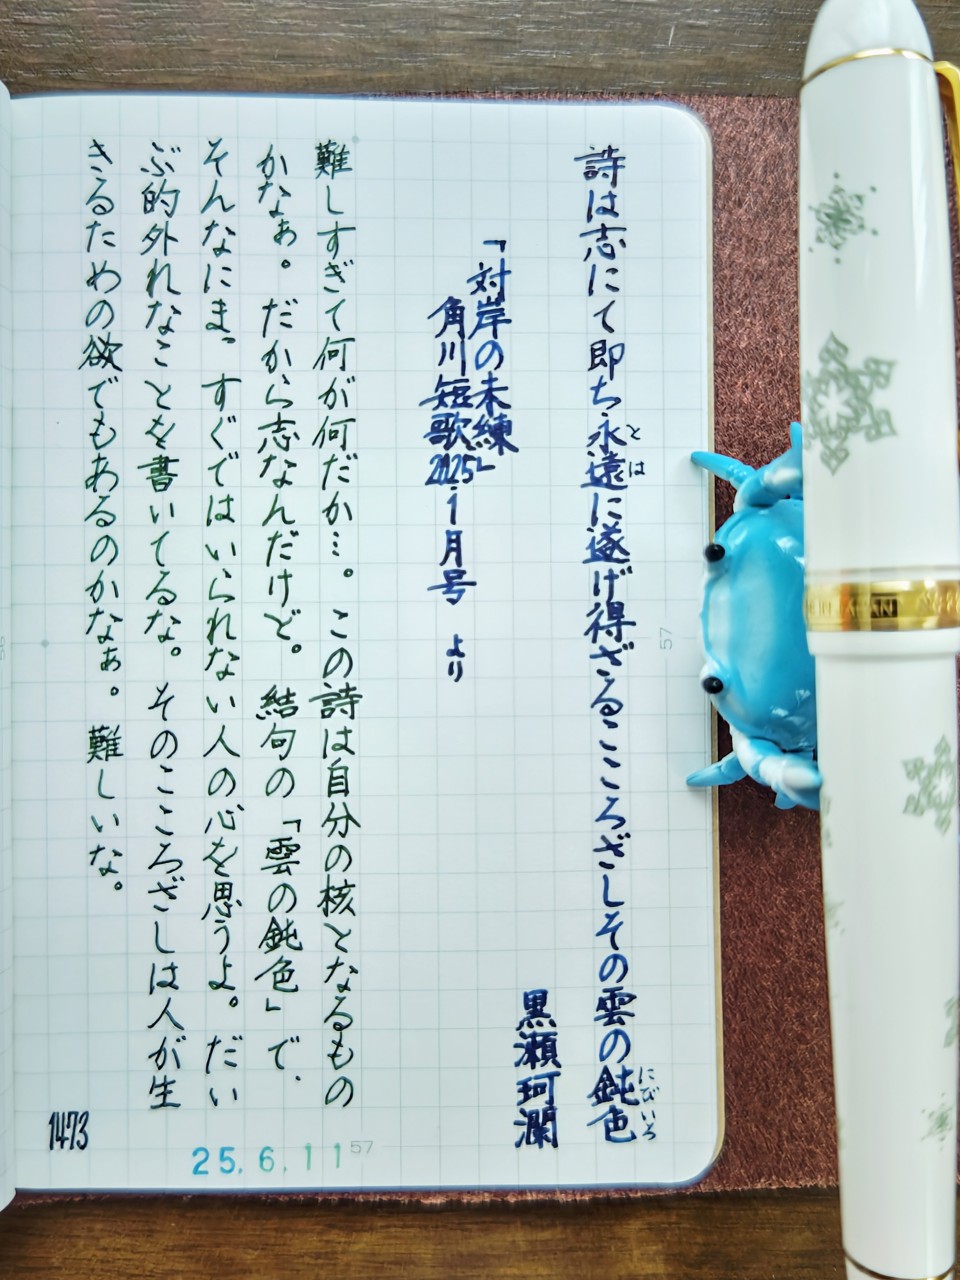 詩は志にて即ち永遠に遂げ得ざるこころざしその雲の鈍色
とは
にびいろ
黒瀬珂瀾
「対岸の未練」
角川短歌2025.1月号 より
難しすぎて何が何だか…。この詩は自分の核となるもの
かなぁ。だから志なんだけど。結句の「雲の鈍色」で、
そんなにまっすぐではいられない人の心を思うよ。だい
ぶ的外れなことを書いてるな。そのこころざしは人が生
きるための欲でもあるのかなぁ。難しいな。
1473
25.6.11
57
57
IN JAPAN